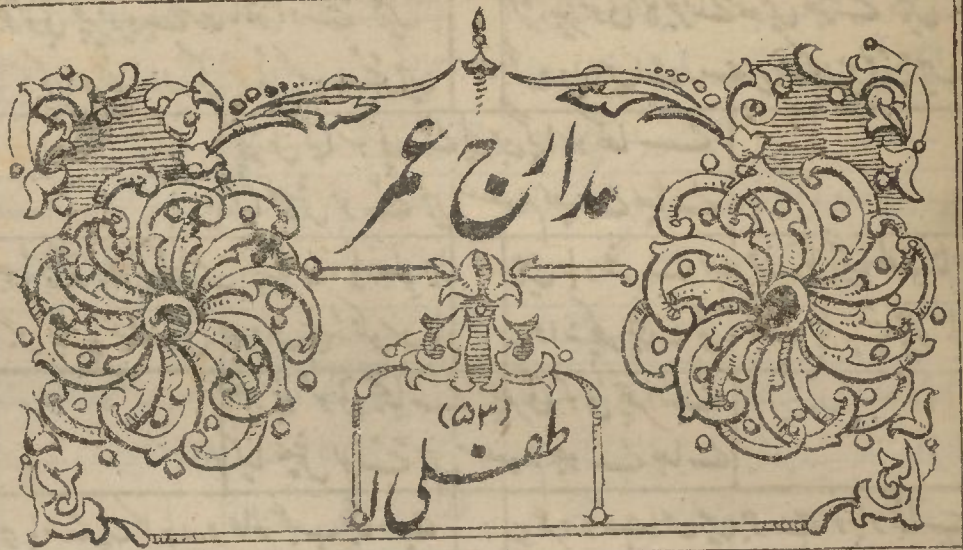 مدارج عمر
(۵۳)
طفلی